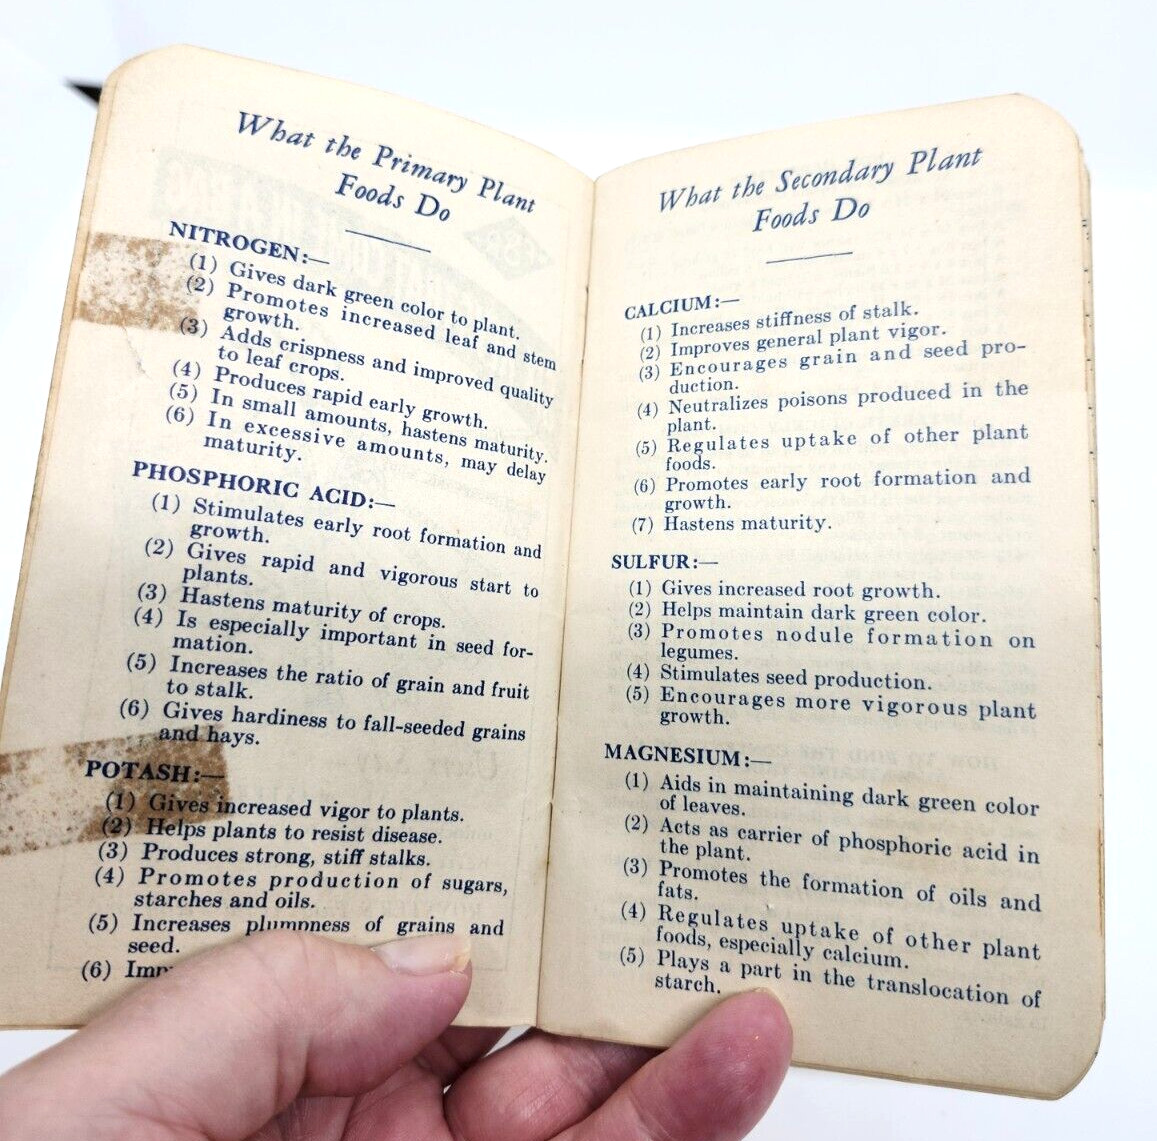 What the Primary Plant
Foods Do
NITROGEN:—
(1) Gives dark green color to plant.
(2) Promotes increased leaf and stem
growth.
(3) Adds crispness and improved quality
to leaf crops.
(4) Produces rapid early growth.
(5) In small amounts, hastens maturity.
(6) In excessive amounts, may delay
maturity.
PHOSPHORIC ACID:—
(1) Stimulates early root formation and
growth.
(2) Gives rapid and vigorous start to
plants.
(3) Hastens maturity of crops.
(4) Is especially important in seed for-
mation.
(5) Increases the ratio of grain and fruit
to stalk.
(6) Gives hardiness to fall-seeded grains
and hays.
POTASH:—
(1) Gives increased vigor to plants.
(2) Helps plants to resist disease.
(3) Produces strong, stiff stalks.
(4) Promotes production of sugars,
starches and oils.
(5) Increases plumpness of grains and
seed.
(6)
What the Secondary Plant
Foods Do
CALCIUM:—
(1) Increases stiffness of stalk.
(2) Improves general plant vigor.
(3) Encourages grain and seed pro-
duction.
(4) Neutralizes poisons produced in the
plant.
(5) Regulates uptake of other plant
foods.
(6) Promotes early root formation and
growth.
(7) Hastens maturity.
SULFUR:—
(1) Gives increased root growth.
(2) Helps maintain dark green color.
(3) Promotes nodule formation on
legumes.
(4) Stimulates seed production.
(5) Encourages more vigorous plant
growth.
MAGNESIUM:—
(1) Aids in maintaining dark green color
of leaves.
(2) Acts as carrier of phosphoric acid in
the plant.
(3) Promotes the formation of oils and
fats.
(4) Regulates uptake of other plant
foods, especially calcium.
(5) Plays a part in the translocation of
starch.